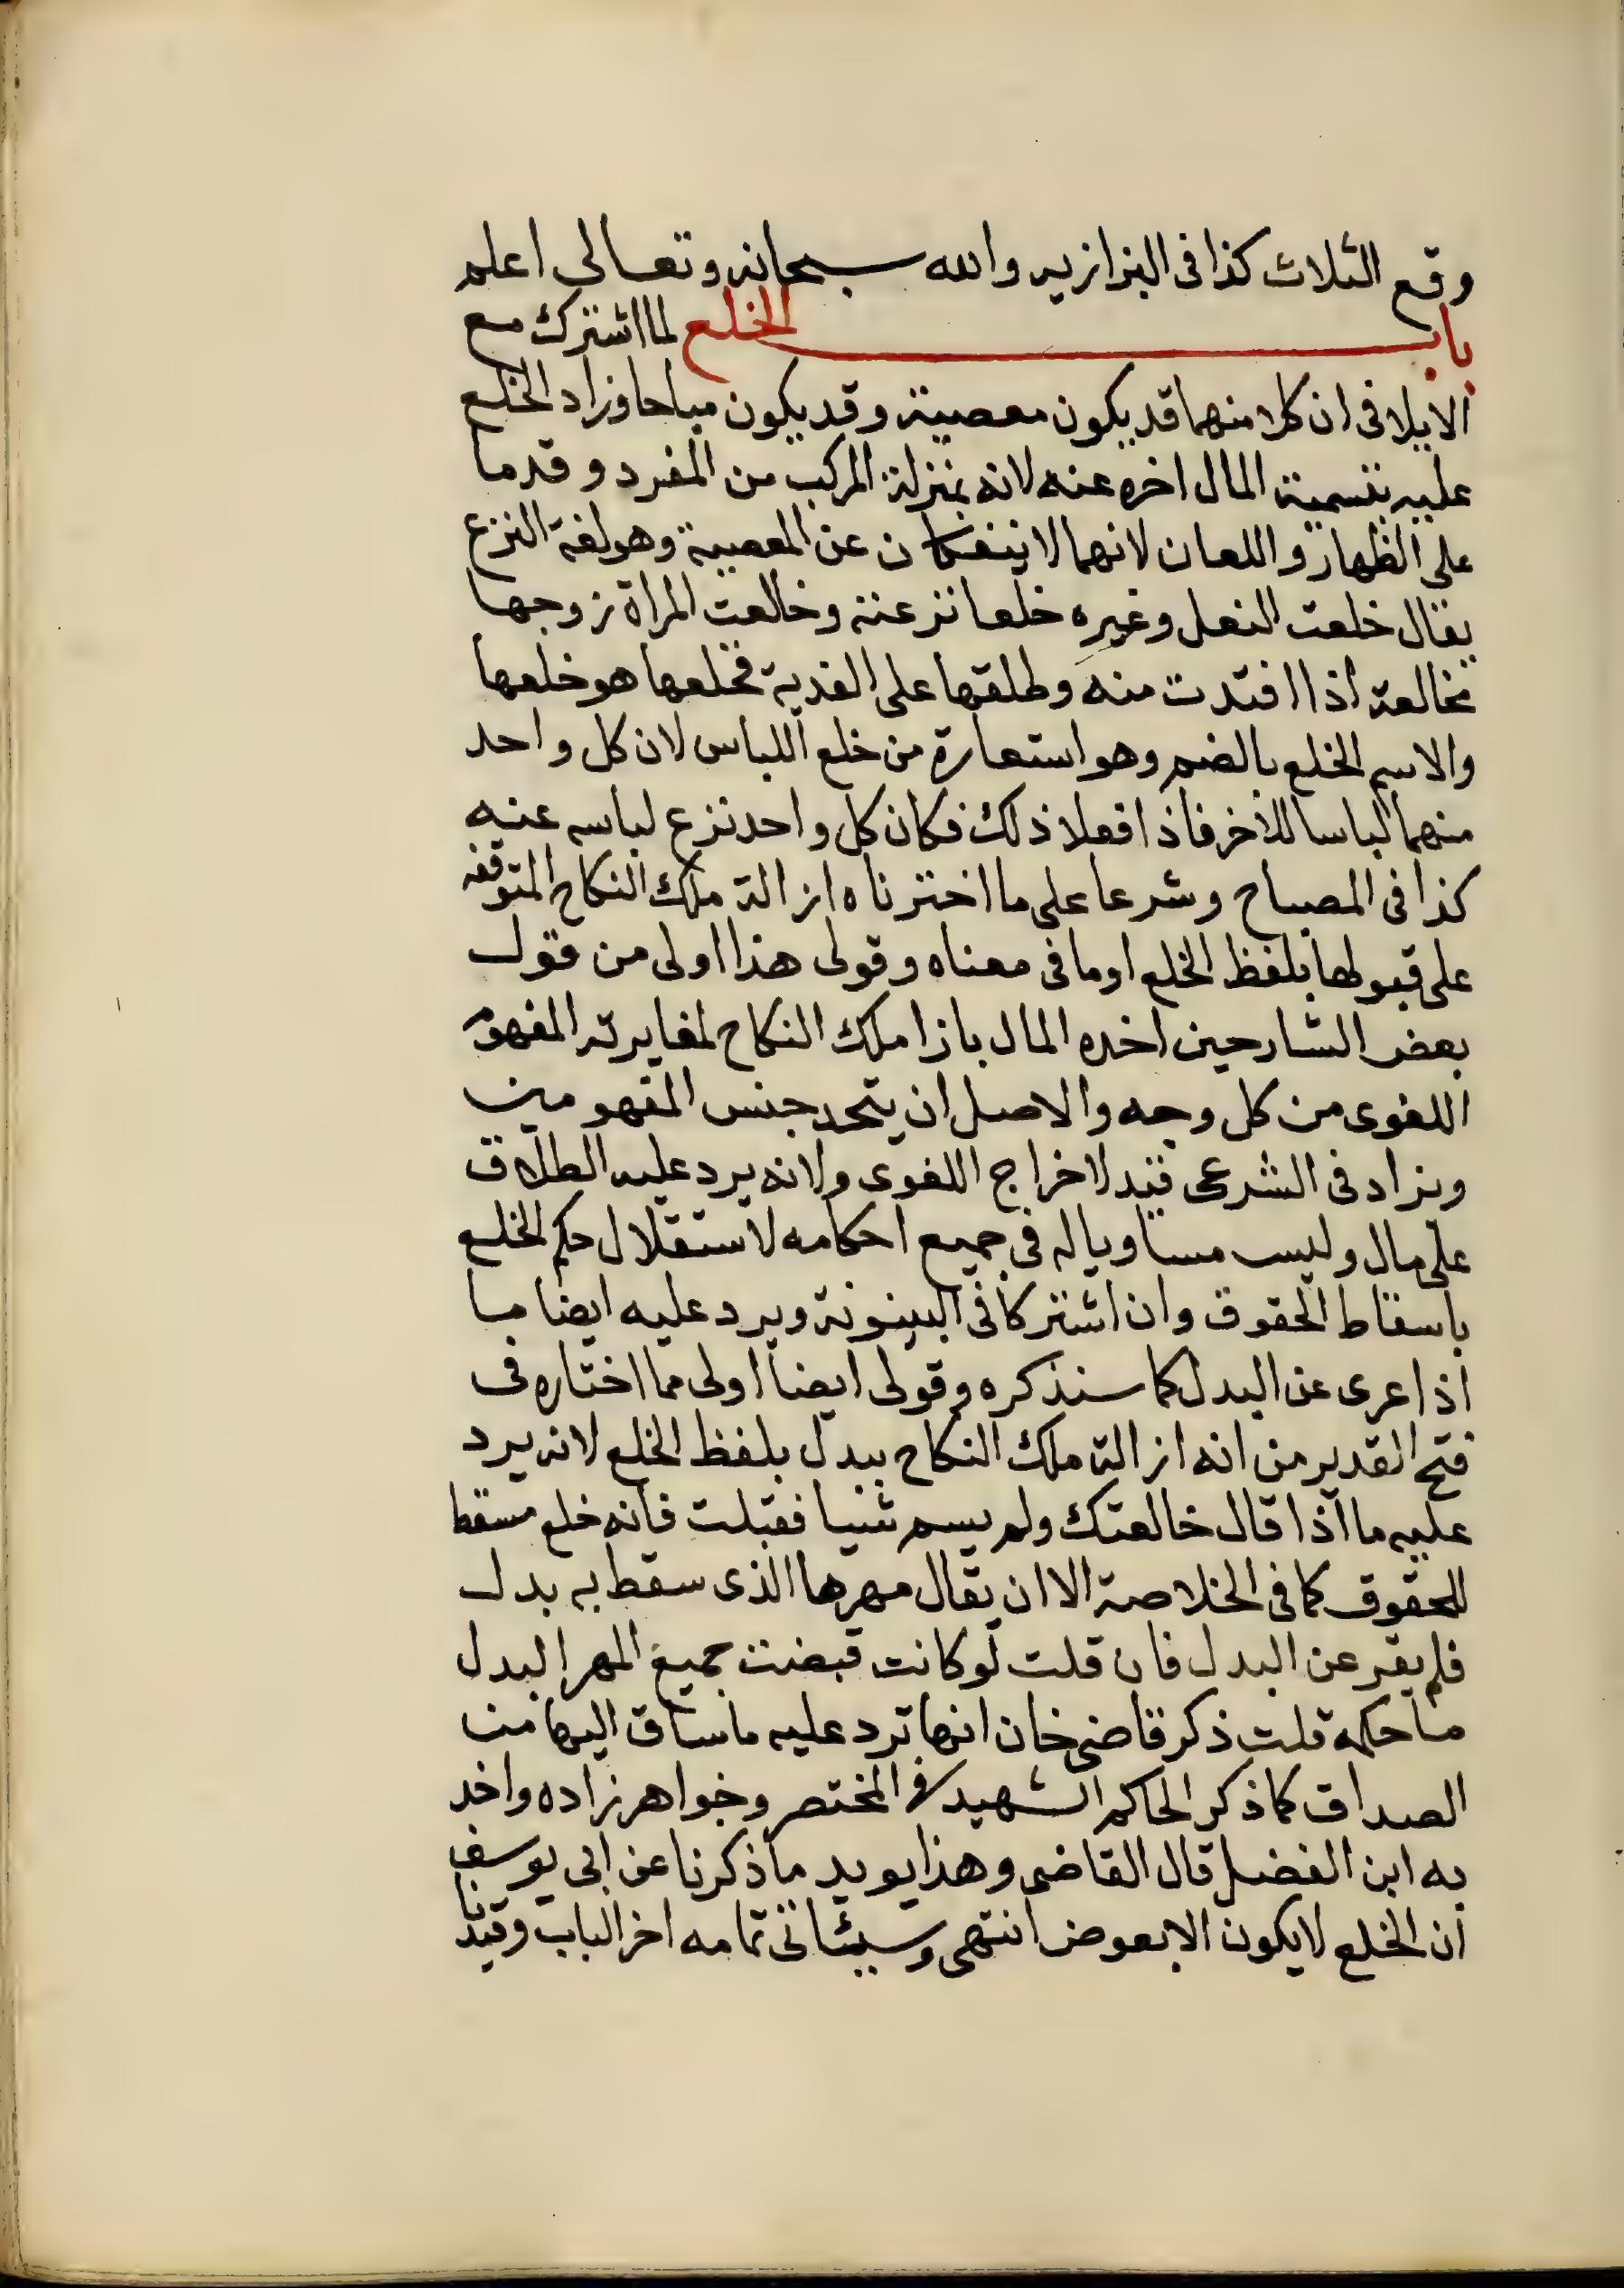 وقع الثلاث كذا فى البزازيه والله سبحانه وتعالى اعلم
باب الخلع لما اشترك مع
الايلا فى ان كلا منهما قد يكون معصية وقد يكون مباحا وزاد الخلع
عليه بتسمية المال اخره عنه لانه بمنزلة المركب من المفرد وقدما
على الظهار واللعان لانهما لا ينفكان عن المعصية وهو لغة النزع
يقال خلعت النعل وغيره خلعا نزعته وخالعت المراة زوجها
مخالعة اذا افتدت منه وطلقها على الفدية فخلعها هو خلعها
والاسم الخلع بالضم وهو استعارة من خلع اللباس لان كل واحد
منهما لباسا للاخر فاذا فعلا ذلك فكان كل واحد نزع لباسه عنه
كذا فى المصباح وشرعا على ما اخترناه ازالة ملك النكاح المتوقفه
على قبولها بلفظ الخلع او ما فى معناه وقولى هذا اولى من قول
بعض الشارحين اخذه المال بازا ملك النكاح لمغايرته المفهوم
اللغوى من كل وجه والاصل ان يتحد جنس المفهومين
ويزاد فى الشرعى قيد لاخراج اللغوى ولانه يرد عليه الطلاق
على مال وليس مساويا له فى جميع احكامه لاستقلال حكم الخلع
باسقاط الحقوق وان اشتركا فى البينونة ويرد عليه ايضا ما
اذا عرى عن البدل كما سنذكره وقولى ايضا اولى مما اختاره فى
فتح القدير من انه ازالة ملك النكاح ببدل بلفظ الخلع لانه يرد
عليه ما اذا قال خالعتك ولم يسم شيا فقبلت فانه خلع مسقط
للحقوق كما فى الخلاصة الا ان يقال مهرها الذى سقط به بدل
فلم يعر عن البدل فان قلت لو كانت قبضت جميع المهر البدل
ما حكمه قلت ذكر قاضى خان انها ترد عليه ما ساق اليها من
الصداق كما ذكر الحاكم الشهيد فى المختصر وخواهر زاده واخذ
به ابن الفضل قال القاضى وهذا يويد ما ذكرنا عن ابى يوسف
ان الخلع لا يكون الا بعوض انتهى وسيئاتى تمامه اخر الباب وقيدنا